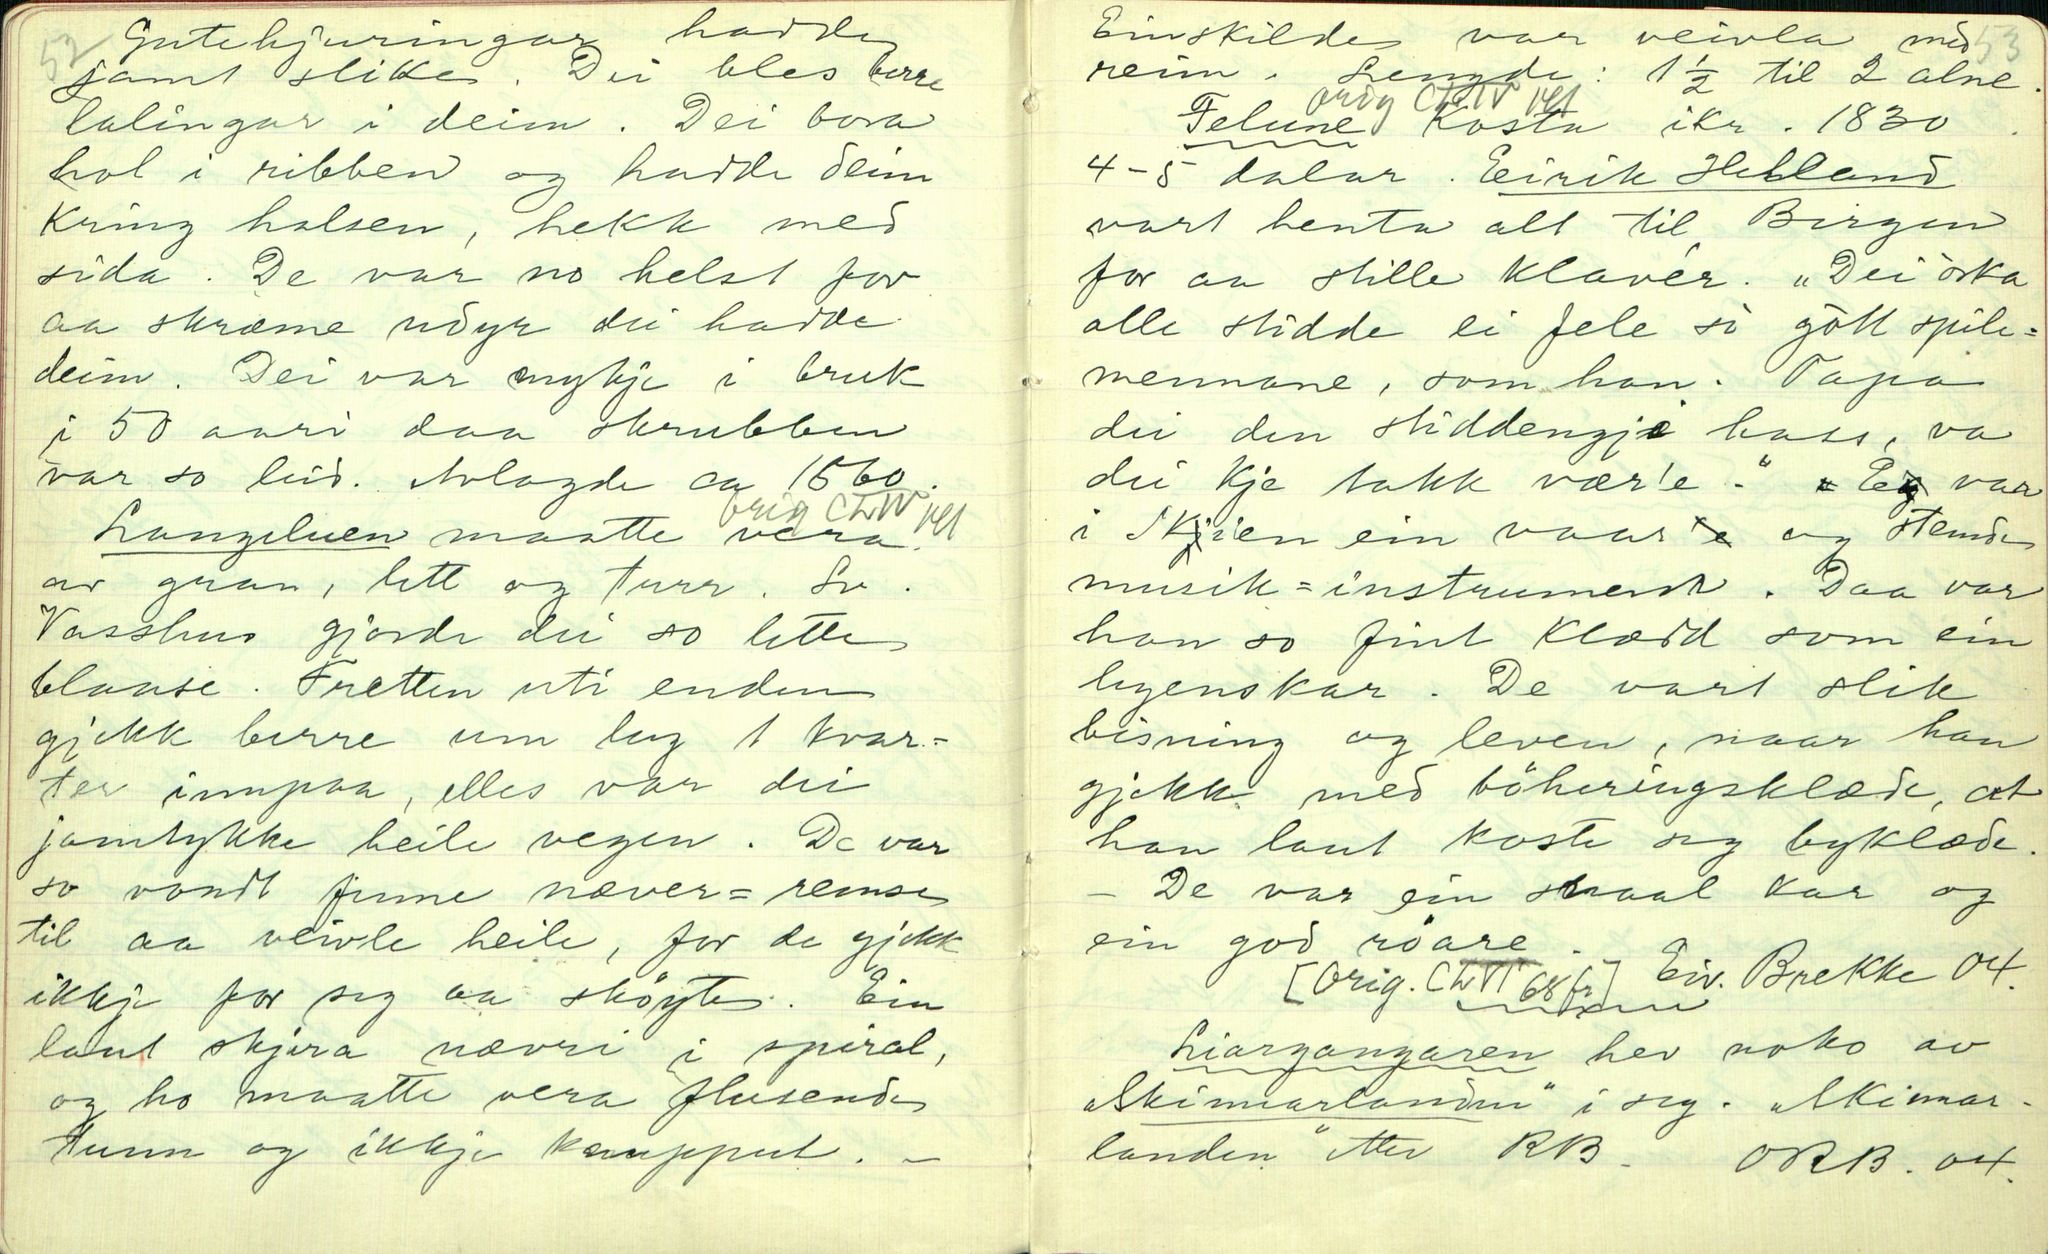 52
Gutehjuringar hadde
jamt slike. Dei bles berre
lalingar i deim. Dei bora
hol i ribben og hadde deim
kring halsen, hekk med
sida. De var no helst for
aa skræme udyr dei hadde
deim. Dei var mykje i bruk
i 50 aari daa skrubben
var so leid. Avlagde ca 1860.
orig Ch IV
Langeluen maatte vera
av gran, lett og turr. Sv.
Vasshus gjorde dei so lette
blaase. Fretten uti enden
gjekk berre um lag 1 kvar-
ter innpaa, elles var dei
jamtykke heile vegen. De var
so vondt finne næver=remse
til aa veivle heile, for de gjekk
ikkje for seg aa sköyte. Ein
laut skjera nævri i spiral,
og ho maatte vera flusende
tunn og ikkje knupput. –
53
Einskilde var veivla med
reim. Lengde: 1 ½ til 2 alne.
orig Ch IV
Felune kosta ikr. 1830
4-5 dalar. Eirik Helland
vart henta alt til Bergen
for aa stille klavér. "Dei örka
alle stidde ei fele so gött spile=
mennane, som han. Tapa
dei den stiddengji hass, va
dei kje takk vær'e." Eg var
i Skjien ein vaar og stemde
musik=instrument. Daa var
han so fint klædd som ein
lyenskar. De vart slik
bisning og leven, naar han
gjekk med böheringsklæde, at
han laut koste seg byklæde.
– De var ein snaal kar og
ein god röare.
[Orig. Ch VI 68 fr] Eiv. Brekke 04.
Liargangaren hev noko av
"Skinnarlanden" i seg. "Skinnar-
landen" etter RB. ORB. 04.